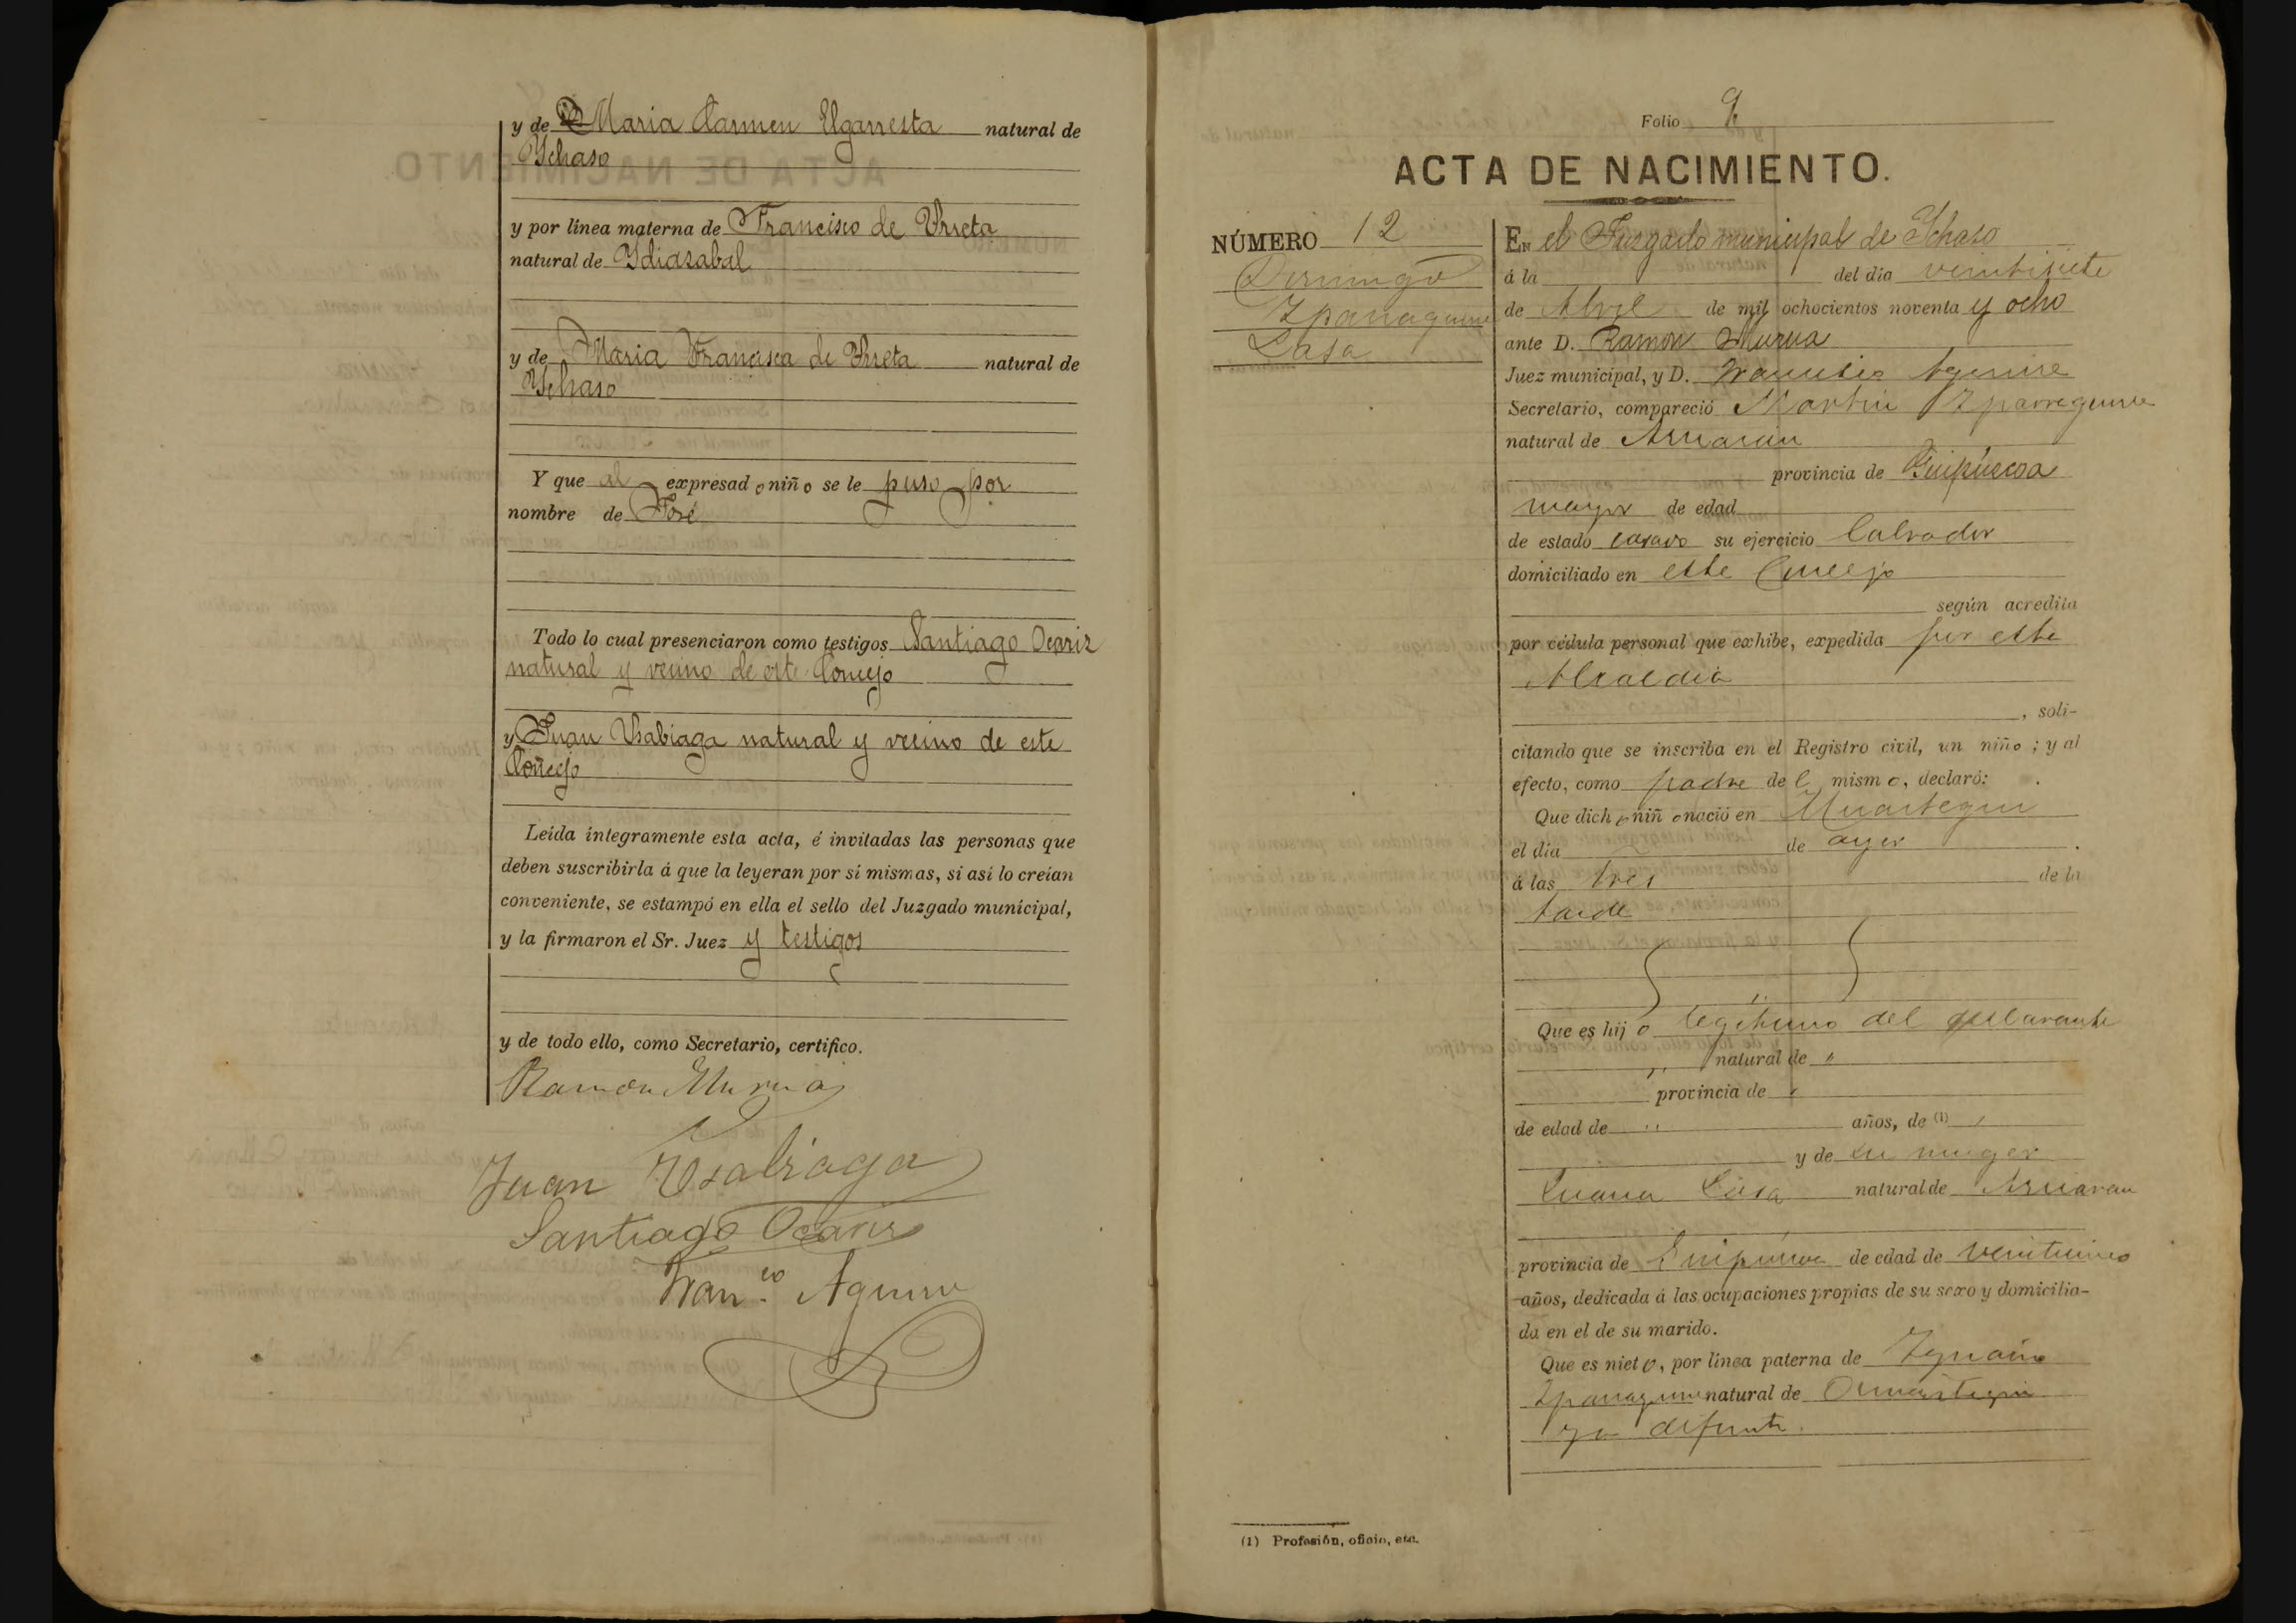 y de Maria Carmen Elgarresta natural de
Ychaso
y por línea materna de Francisco de Urreta
natural de Ydiasabal
y de Maria Francisca de Urreta natural de
Ychaso
Y que al expresado niño se le puso por
nombre de José
Todo lo cual presenciaron como testigos Santiago Ocariz
natural y vecino de este Concejo
y Juan Usabiaga natural y vecino de este
Concejo
Leída íntegramente esta acta, é invitadas las personas que
deben suscribirla á que la leyeran por sí mismas, si así lo creían
conveniente, se estampó en ella el sello del Juzgado municipal,
y la firmaron el Sr. Juez y testigos
y de todo ello, como Secretario, certifico.
Ramon Murua
Juan Usabiaga
Santiago Ocariz
Fran.co Aguirre
Folio 9
ACTA DE NACIMIENTO.
NÚMERO 12
Domingo
Yparraguirre
Lasa
En el Juzgado municipal de Ychaso
á la del día veintisiete
de Abril de mil ochocientos noventa y ocho
ante D. Ramon Murua
Juez municipal, y D. Francisco Aguirre
Secretario, compareció Martin Yparraguirre
natural de Arriaran
provincia de Guipúzcoa
mayor de edad
de estado casado su ejercicio Labrador
domiciliado en este Concejo
según acredita
por cédula personal que exhibe, expedida por esta
Alcaldia
, soli-
citando que se inscriba en el Registro civil, un niño; y al
efecto, como padre del mismo, declaró:
Que dicho niño nació en
el día de ayer
á las tres de la
tarde
Que es hijo legitimo del declarante
natural de "
provincia de "
de edad de " años, de (1) "
y de su muger
Juana Lasa natural de Arriaran
provincia de Guipúzcoa de edad de veinticinco
años, dedicada á las ocupaciones propias de su sexo y domicilia-
da en el de su marido.
Que es nieto, por línea paterna de Ygnacio
Yparraguirre natural de Ormaiztegui
ya difunto.
(1) Profesión, oficio, etc.